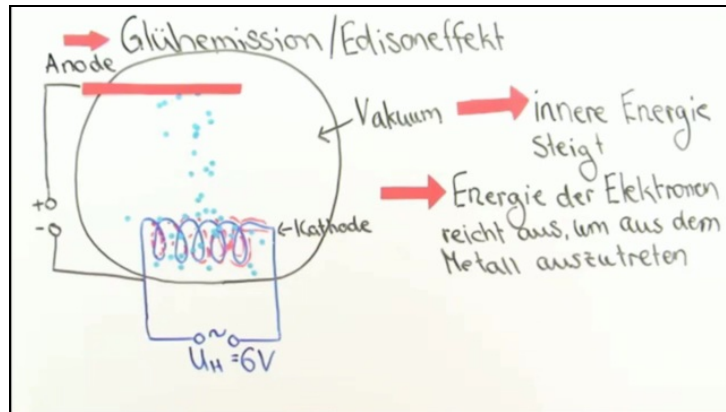 Glühemission/Edisoneffekt
Anode
Vakuum
innere Energie
steigt
Energie der Elektronen
reicht aus, um aus dem
Metall auszutreten
+
-
Kathode
~
U_H = 6V